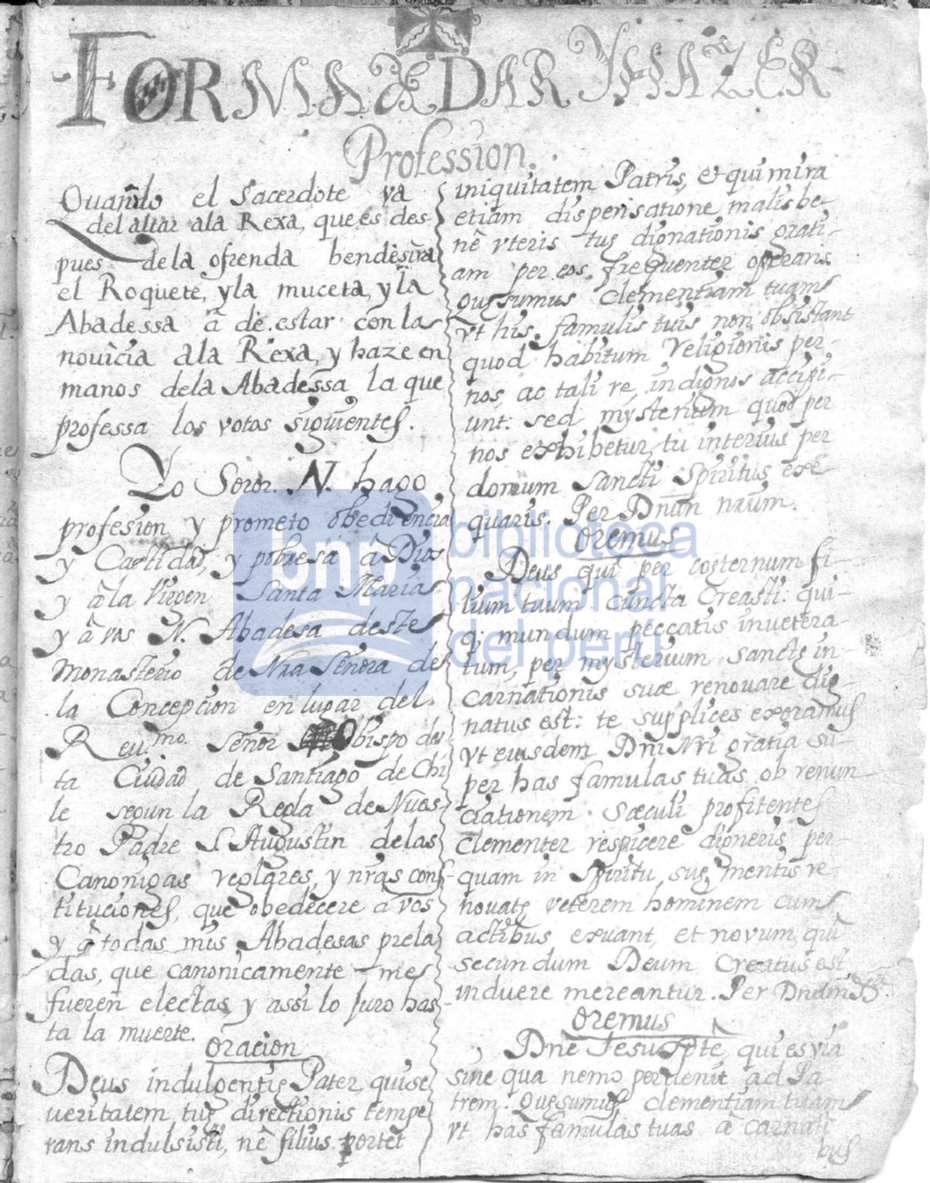 FORMA DE DAR Y HAZER
Profession.
Quando el Sacerdote va
del altar ala Rexa, que es des-
pues dela ofrenda bendesira
el Roquete, y la muceta, y la
Abadessa â de estar con la
novicia ala Rexa, y haze en
manos dela Abadessa la que
professa los votos siguientes.
Yo Soror. N. hago
profesion y prometo obediencia
y Castidad, y pobresa â Dios
y â la Virgen Santa Maria
y â vos N. Abadesa deste
monasterio de Nra Señora de
la Concepcion en lugar del
Reumo. Señor Obispo des
ta Ciudad de Santiago de Chi
le segun la Regla de Nues
tro Padre S. Augustin delas
Canonigas reglares, y nras cons
tituciones, que obedecere a vos
y â todas mis Abadesas prela
das, que canonicamente me
fueren electas y assi lo juro has-
ta la muerte.
Oracion
Deus indulgentię Pater, qui se
veritatem tuę directionis tempe
rans indulsisti, nê filius portet
iniquitatem Patris, et qui mira
etiam dispensatione malis be-
nê vteris tuę dignationis grati-
am per eos frequenter operans
quęsumus clementiam tuam
vt his famulis tuis non obsistant
quod habitum religionis per
nos, ac tali re indignos accipi-
unt: sed mÿsterium quod per
nos exhibetur, tu interius per
donum Sancti Spiritus exe
quaris. Per Dnûm nrûm.
Oremus
Deus qui per coeternum fi-
lium tuum cuncta creasti: qui-
q; mundum peccatis invetera-
tum, per mysterium sanctę in-
carnationis suæ renovare dig
natus est: te supplices exoramus
vt eiusdem Dni Nri gratia su
per has famulas tuas ob renun
ciationem sæculi profitentes
clementer respicere digneris per-
quam in Spiritu suę mentis re-
novatę veterem hominem cum
actibus exuant, et novum, qui
secundum Deum creatus est,
induere mereantur. Per Dnum
Oremus
Dne Jesu Xpte, qui es via
sine qua nemo pervenit ad Pa
trem. quęsumus clementiam tuam
vt has famulas tuas a carnali
bus
biblioteca
nacional
del perú
bnp